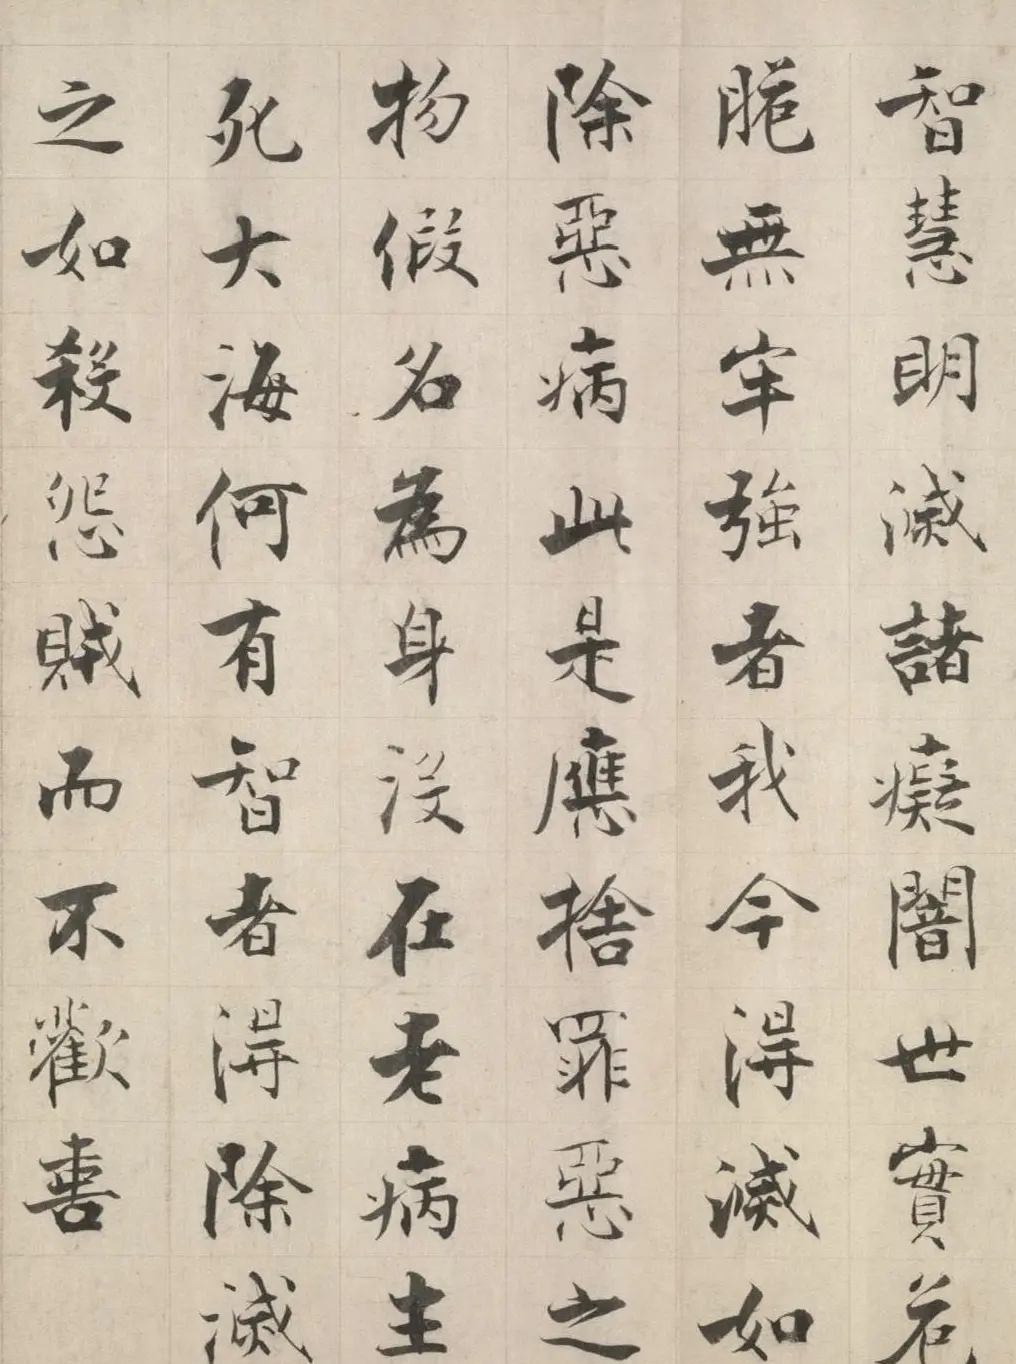 智慧明滅諸癡闇世實危
脆無牢強者我今得滅如
除惡病此是應捨罪惡之
物假名為身没在老病生
死大海何有智者得除滅
之如殺怨賊而不歡喜